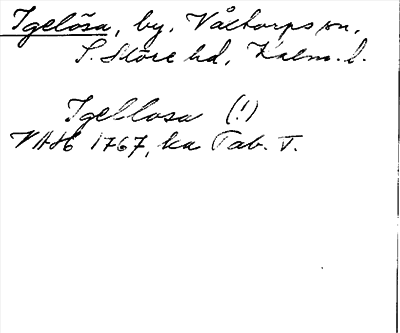 Igelösa, by, Våltorps sn,
S. Möre hd, Kalm. l.
Igellosa (!)
VAH 1767, ka Tab. I.